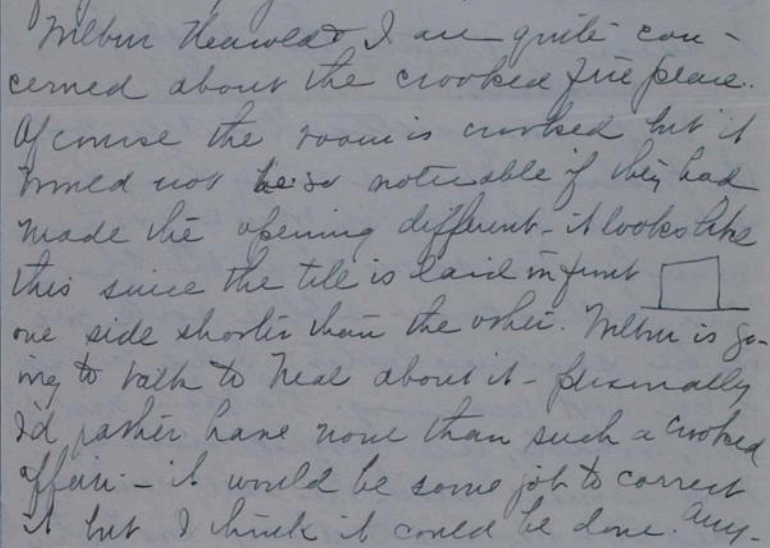 Wilbur Harold & I are quite con-
cerned about the crooked fire place.
Of course the room is crooked but it
would not be so noticable if they had
made the opening different - it looks like
this since the tile is laid in front
one side shorter than the other. Wilbur is go-
ing to talk to Neal about it - personally
I'd rather have none than such a crooked
affair - it would be some job to correct
it but I think it could be done. Any-